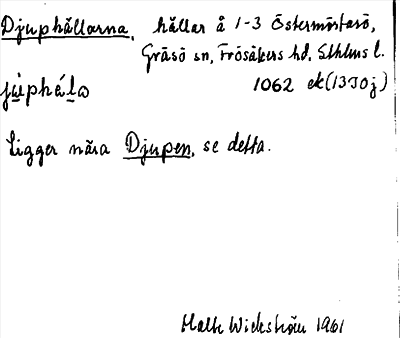 Djuphällorna, hällar å 1-3 Östermörtarö,
Gräsö sn, Frösåkers hd, Sthlms l.
1062 ek (13I0j)
Ligger nära Djupen, se detta.
Wickström 1961